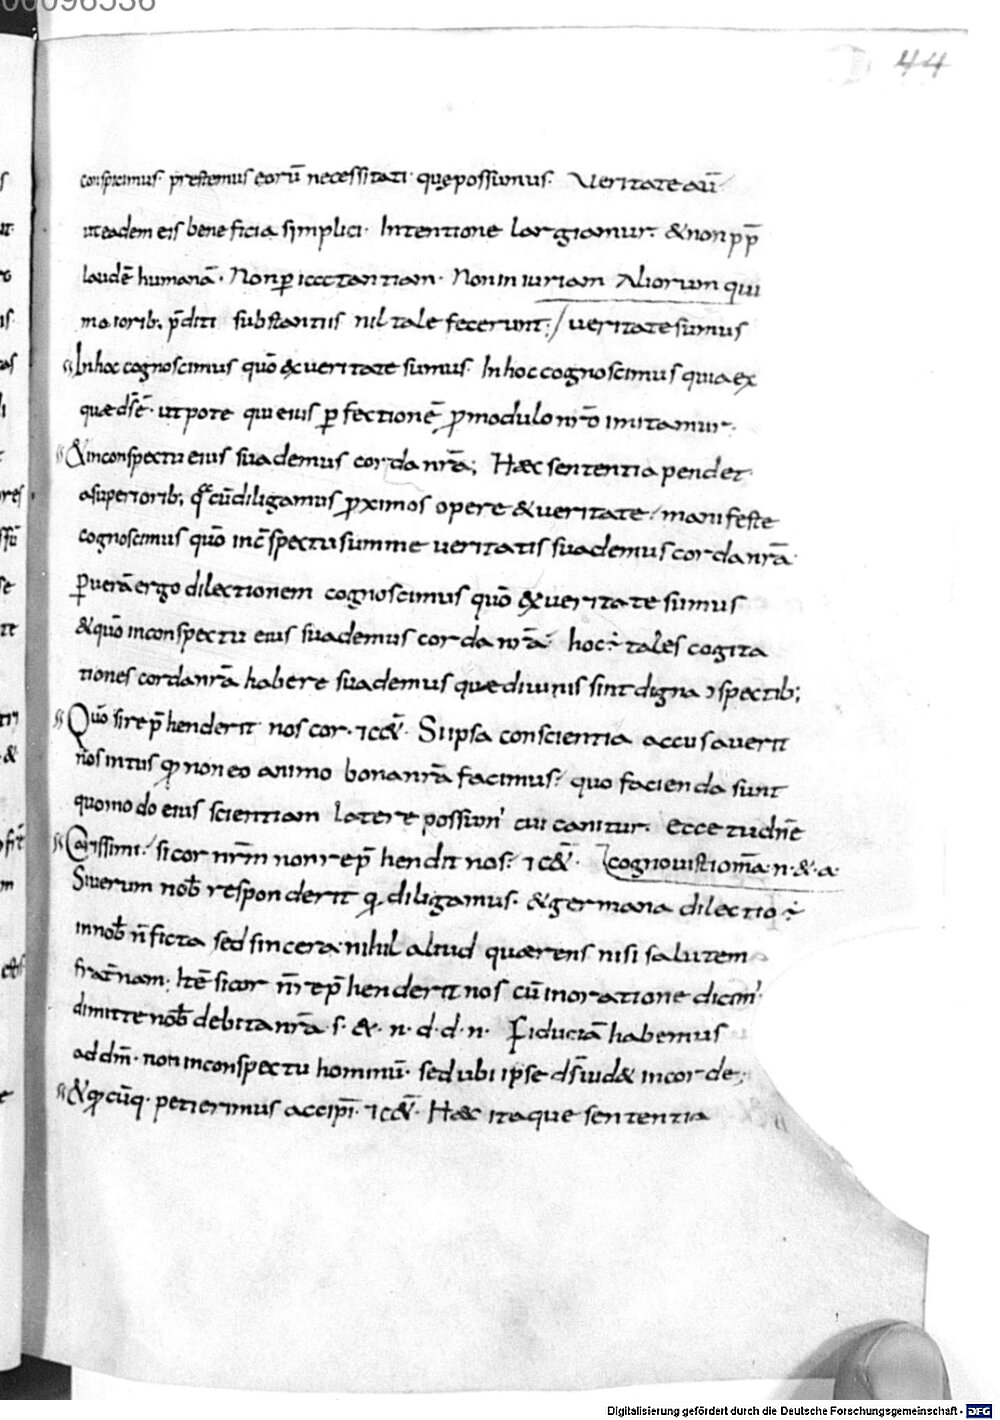 00096536
44
conspicimus· prestemus eorū necessitati· quę possumus· Veritate aū
ut eadem eis beneficia simplici· Intentione largiamur· & non pp̄
laudē humanā· Non p̱ iactantiam· Non in iuriam Aliorum qui
maiorib; p̄diti substantiis nil tale fecerunt;/ ueritate sumus
In hoc cognoscimus quō ex ueritate sumus· In hoc cognoscimus quia ex
quæ ds̄ ē· ut pote qui eius p̱fectionē p̱ modulo nr̄o imitamur·
& in conspectu eius suademus corda nr̄a; Hæc sententia pendet
a superiorib; cū diligamus p̱ximos opere & ueritate/ manifeste
cognoscimus quō in c̄spectu summe ueritatis suademus corda nr̄a·
p̱ uerā ergo dilectionem cognoscimus quō ex ueritate sumus
& quō in conspectu eius suademus corda nr̄a· hoc ÷ tales cogita
tiones corda nr̄a habere suademus quæ diuinis sint digna ɔspectib;
Quō si rep̄henderit nos cor· & Si ipsa conscientia accusauerit
nos intus non eo animo bona nr̄a facimus/ quo facienda sunt
quomodo eius scientiam latere possum' cui canitur· Ecce tu dn̄e
Carissimi/ si cor nr̄m non rep̄hendit nos/ cognouisti om̄a· n· &· a·
Si uerum nob̄ responderit q diligamus· & germana dilectio ÷
in nob̄ n̄ ficta sed sincera· nihil aliud quærens nisi salutem
frat̄nam· Itē si cor n̄ rep̄henderit nos cū in oratione dicim'
dimitte nob̄ debita nr̄a s· &· n· d· d· n· Fiduciā habemus
ad dm̄· non in conspectu hominū· sed ubi ipse ds̄ uid& in corde;
& cūq· petierimus accipi· Hæc itaque sententia
Digitalisierung gefördert durch die Deutsche Forschungsgemeinschaft - DFG